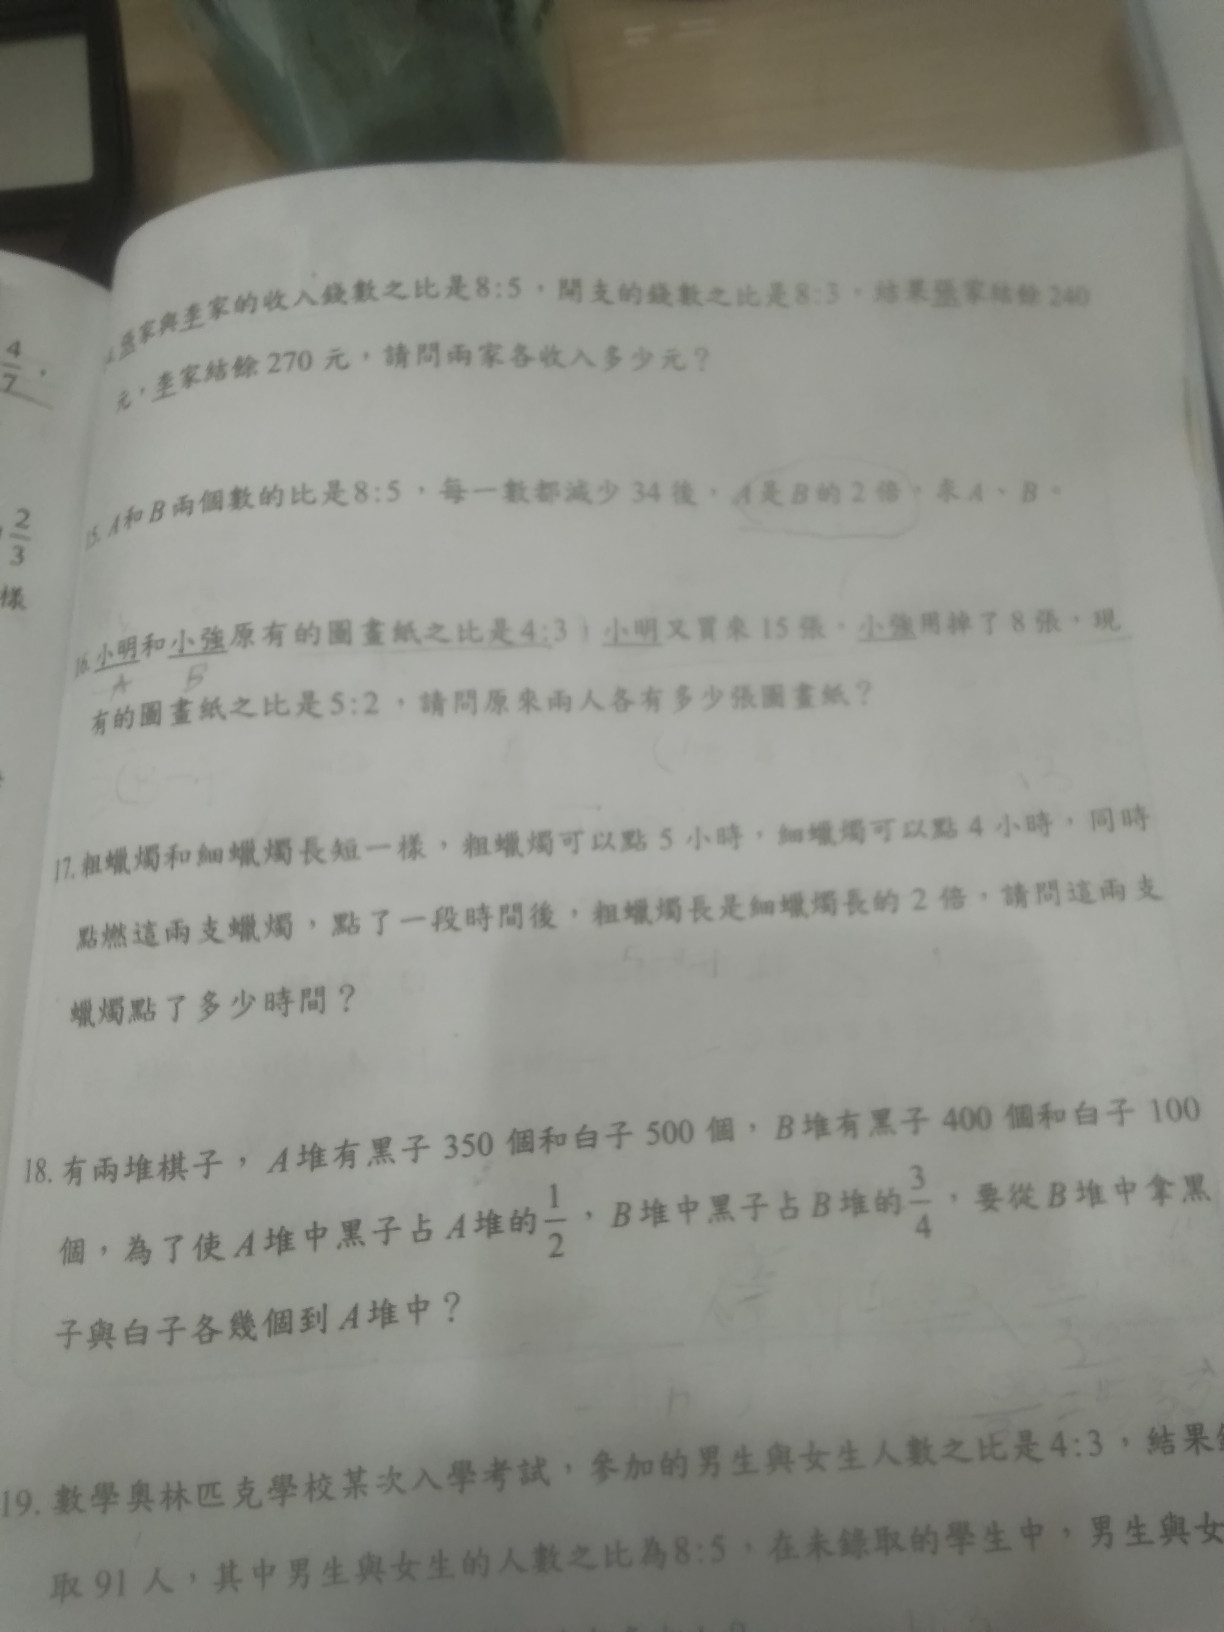 4
7
,
2
3
樣
張家與李家的收入錢數之比是8:5,開支的錢數之比是8:3,結果張家結餘240
元,李家結餘270元,請問兩家各收入多少元?
15. A和B兩個數的比是8:5,每一數都減少34後,A是B的2倍,求A、B。
16. 小明和小強原有的圖畫紙之比是4:3,小明又買來15張,小強用掉了8張,現
A B
有的圖畫紙之比是5:2,請問原來兩人各有多少張圖畫紙?
17. 粗蠟燭和細蠟燭長短一樣,粗蠟燭可以點5小時,細蠟燭可以點4小時,同時
點燃這兩支蠟燭,點了一段時間後,粗蠟燭長是細蠟燭長的2倍,請問這兩支
蠟燭點了多少時間?
18. 有兩堆棋子,A堆有黑子350個和白子500個,B堆有黑子400個和白子100
個,為了使A堆中黑子占A堆的1/2,B堆中黑子占B堆的3/4,要從B堆中拿黑
子與白子各幾個到A堆中?
19. 數學奧林匹克學校某次入學考試,參加的男生與女生人數之比是4:3,結果
取91人,其中男生與女生的人數之比為8:5,在未錄取的學生中,男生與女